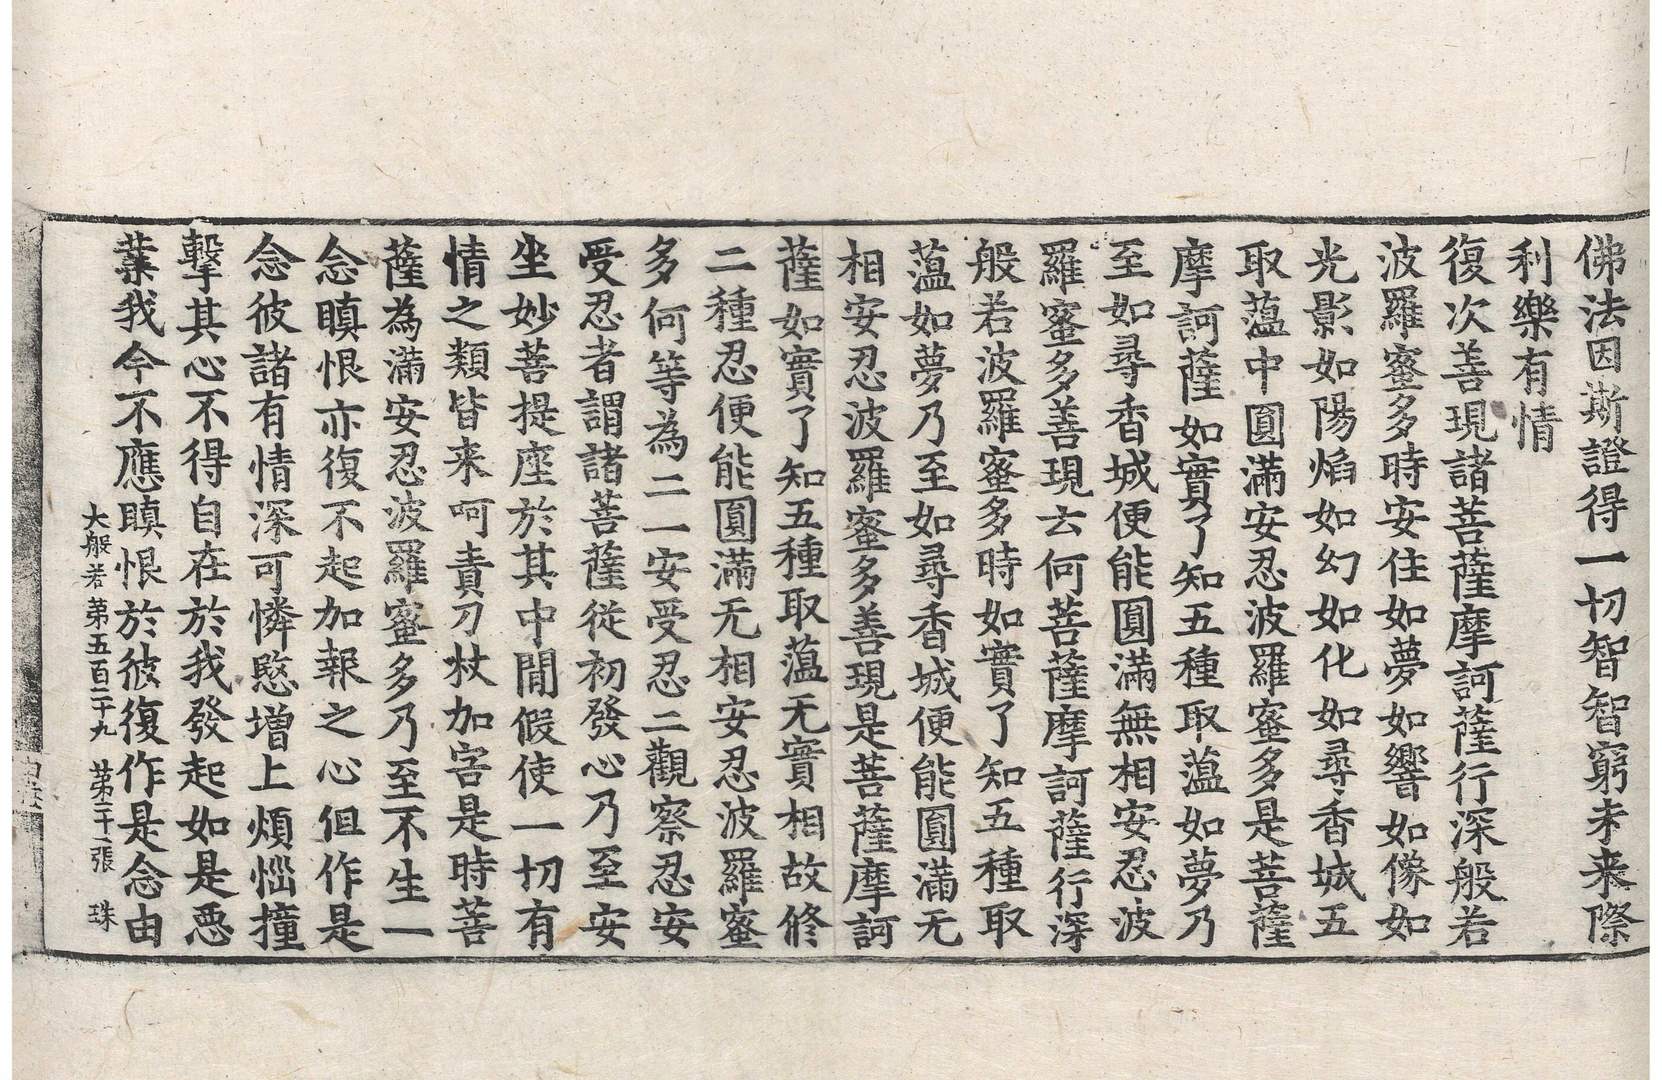 佛法因斯證得一切智智窮未来際
利樂有情
復次善現諸菩薩摩訶薩行深般若
波羅蜜多時安住如夢如響如像如
光影如陽焰如幻如化如尋香城五
取蘊中圓滿安忍波羅蜜多是菩薩
摩訶薩如實了知五種取蘊如夢乃
至如尋香城便能圓滿無相安忍波
羅蜜多善現云何菩薩摩訶薩行深
般若波羅蜜多時如實了知五種取
蘊如夢乃至如尋香城便能圓滿无
相安忍波羅蜜多善現是菩薩摩訶
薩如實了知五種取蘊无實相故修
二種忍便能圓滿无相安忍波羅蜜
多何等為二一安受忍二觀察忍安
受忍者謂諸菩薩從初發心乃至安
坐妙菩提座於其中間假使一切有
情之類皆来呵責刀杖加害是時菩
薩為滿安忍波羅蜜多乃至不生一
念瞋恨亦復不起加報之心但作是
念彼諸有情深可憐愍增上煩惱撞
擊其心不得自在於我發起如是惡
業我今不應瞋恨於彼復作是念由
大般若第五百二十九 第二十張 珠